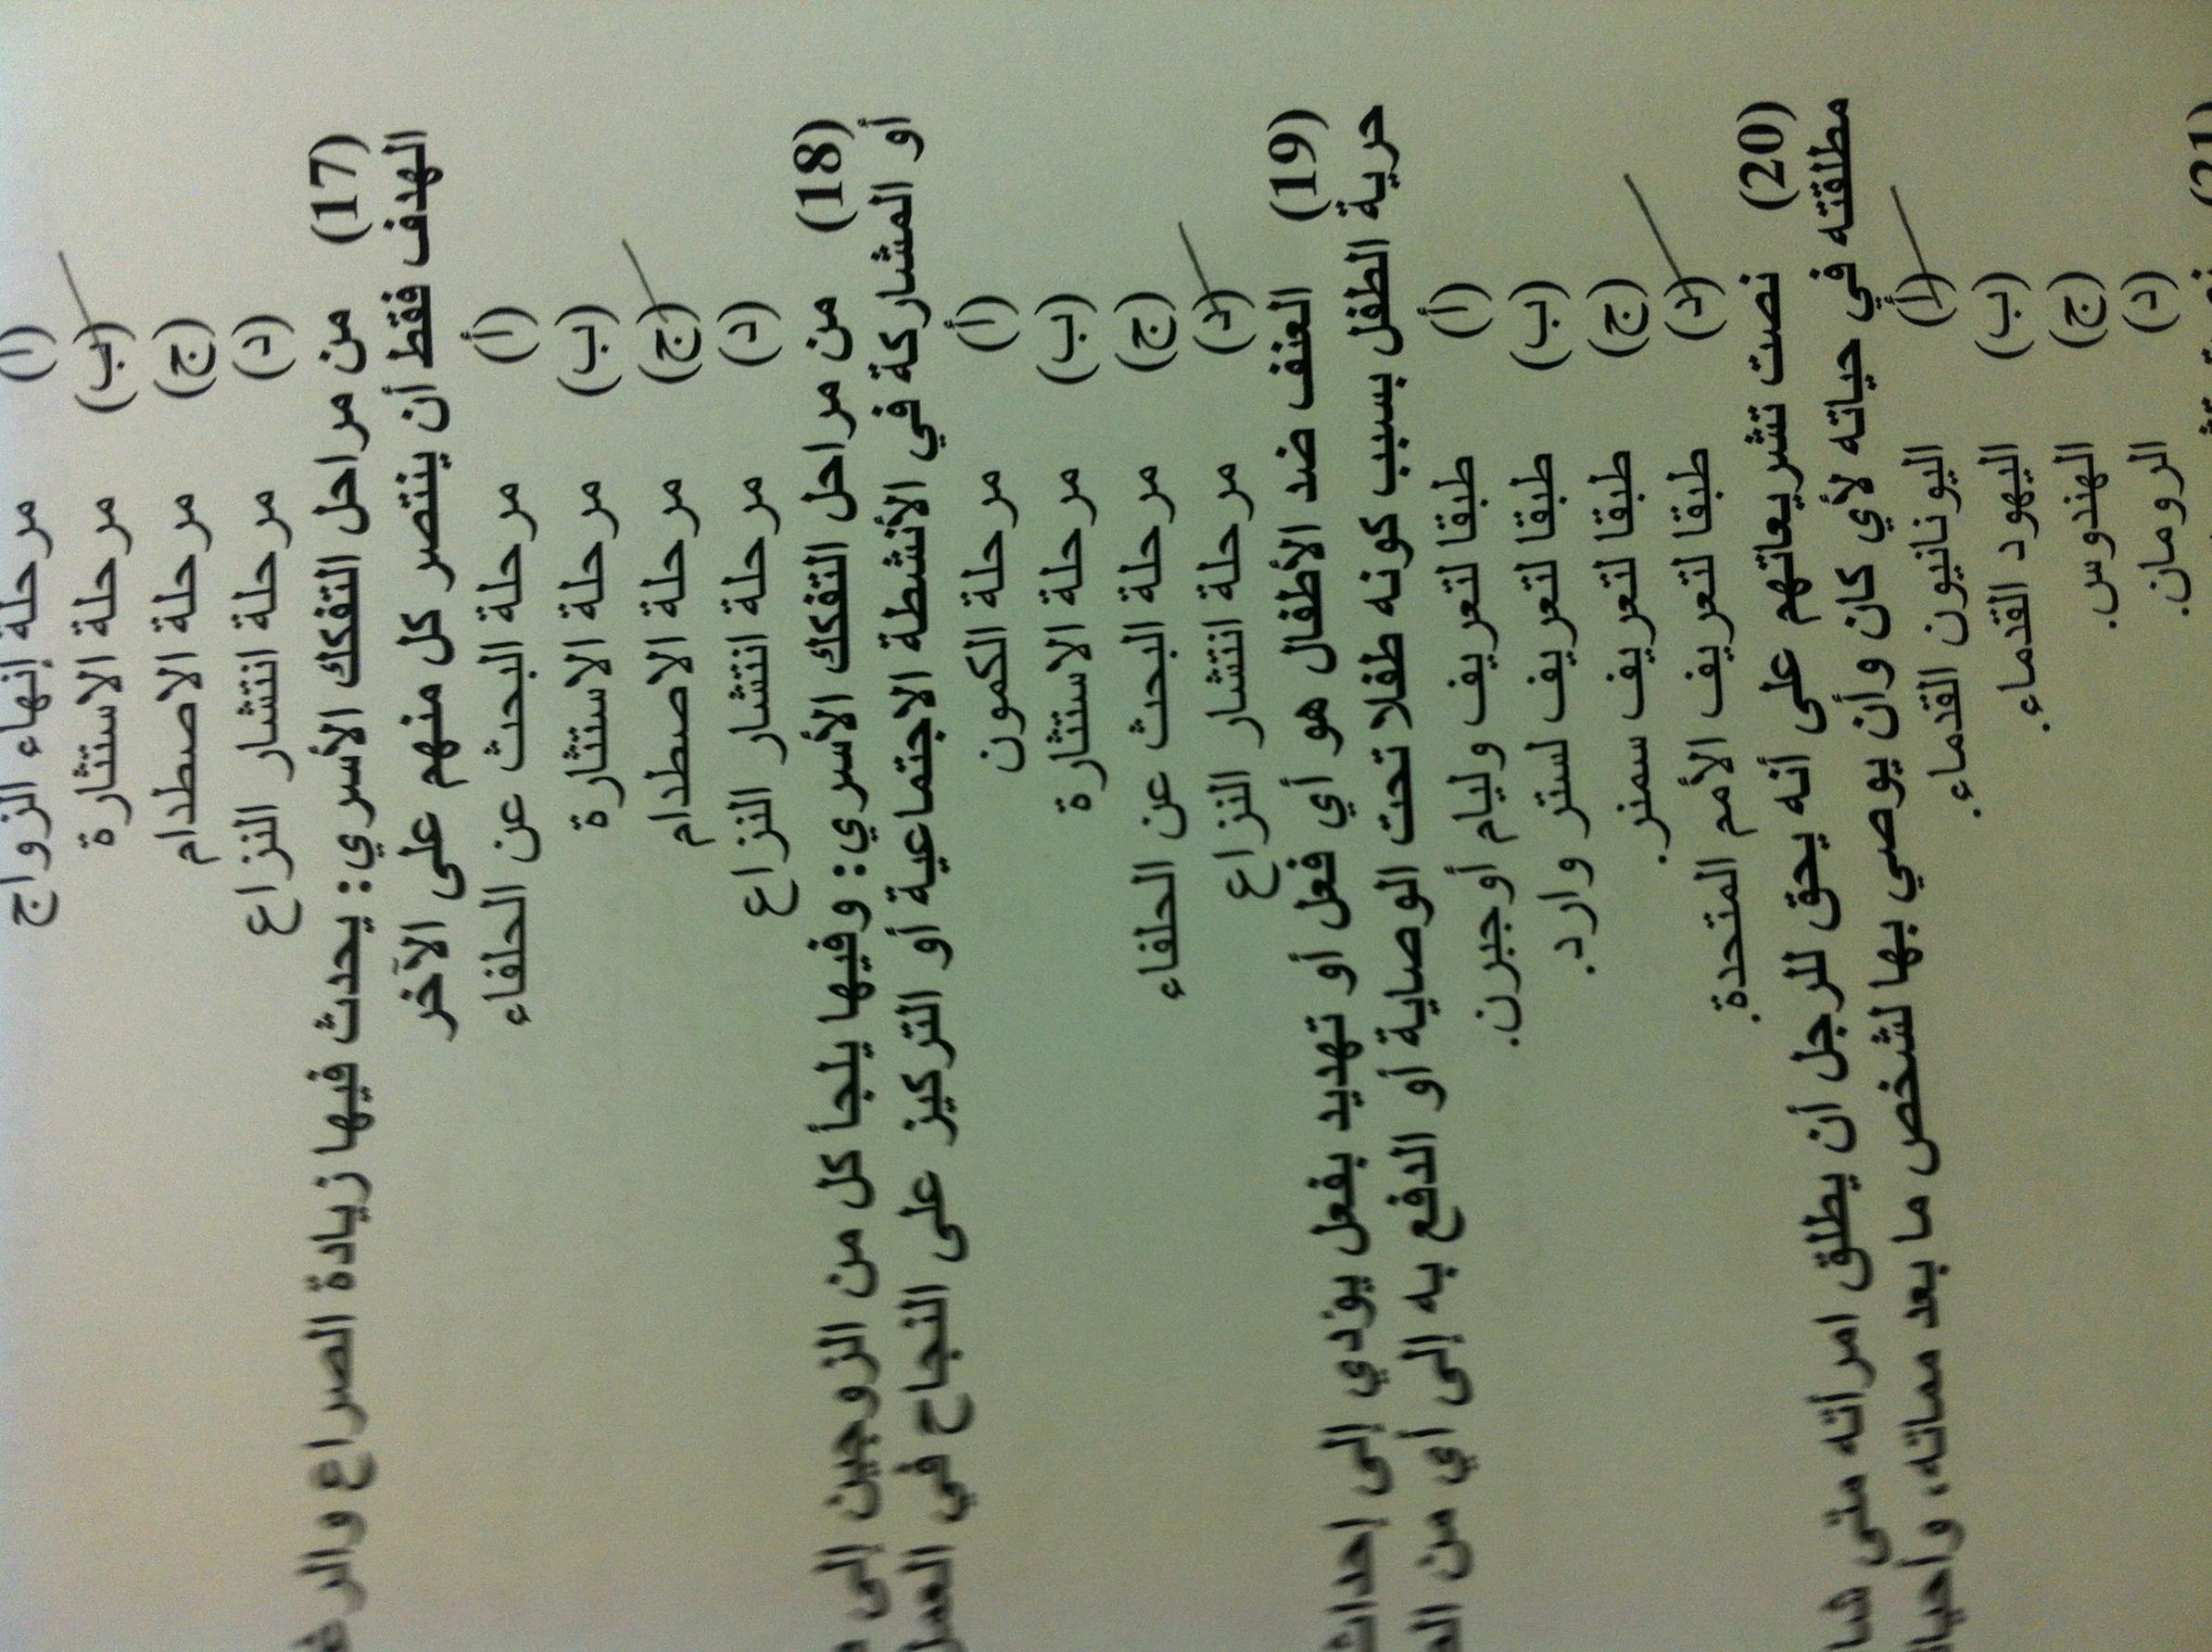 (أ) مرحلة إنهاء الزواج
(ب) مرحلة الاستثارة
(ج) مرحلة الاصطدام
(د) مرحلة انتشار النزاع
(17) من مراحل التفكك الأسري: يحدث فيها زيادة الصراع
الهدف فقط أن ينتصر كل منهم على الآخر
(أ) مرحلة البحث عن الحلفاء
(ب) مرحلة الاستثارة
(ج) مرحلة الاصطدام
(د) مرحلة انتشار النزاع
(18) من مراحل التفكك الأسري: وفيها يلجأ كل من الزوجين إلى
أو المشاركة في الأنشطة الاجتماعية أو التركيز على النجاح في العمل
(أ) مرحلة الكمون
(ب) مرحلة الاستثارة
(ج) مرحلة البحث عن الحلفاء
(د) مرحلة انتشار النزاع
(19) العنف ضد الأطفال هو أي فعل أو تهديد بفعل يؤدي إلى إحداث
حرية الطفل بسبب كونه طفلا تحت الوصاية أو الدفع به إلى أي من
(أ) طبقا لتعريف وليام أوجبرن.
(ب) طبقا لتعريف لستر وارد.
(ج) طبقا لتعريف سمنر.
(د) طبقا لتعريف الأمم المتحدة.
(20) نصت تشريعاتهم على أنه يحق للرجل أن يطلق امرأته متى
مطلقته في حياته لأي كان وأن يوصي بها لشخص ما بعد مماته،
(أ) اليونانيون القدماء.
(ب) اليهود القدماء.
(ج) الهندوس.
(د) الرومان.
(21)